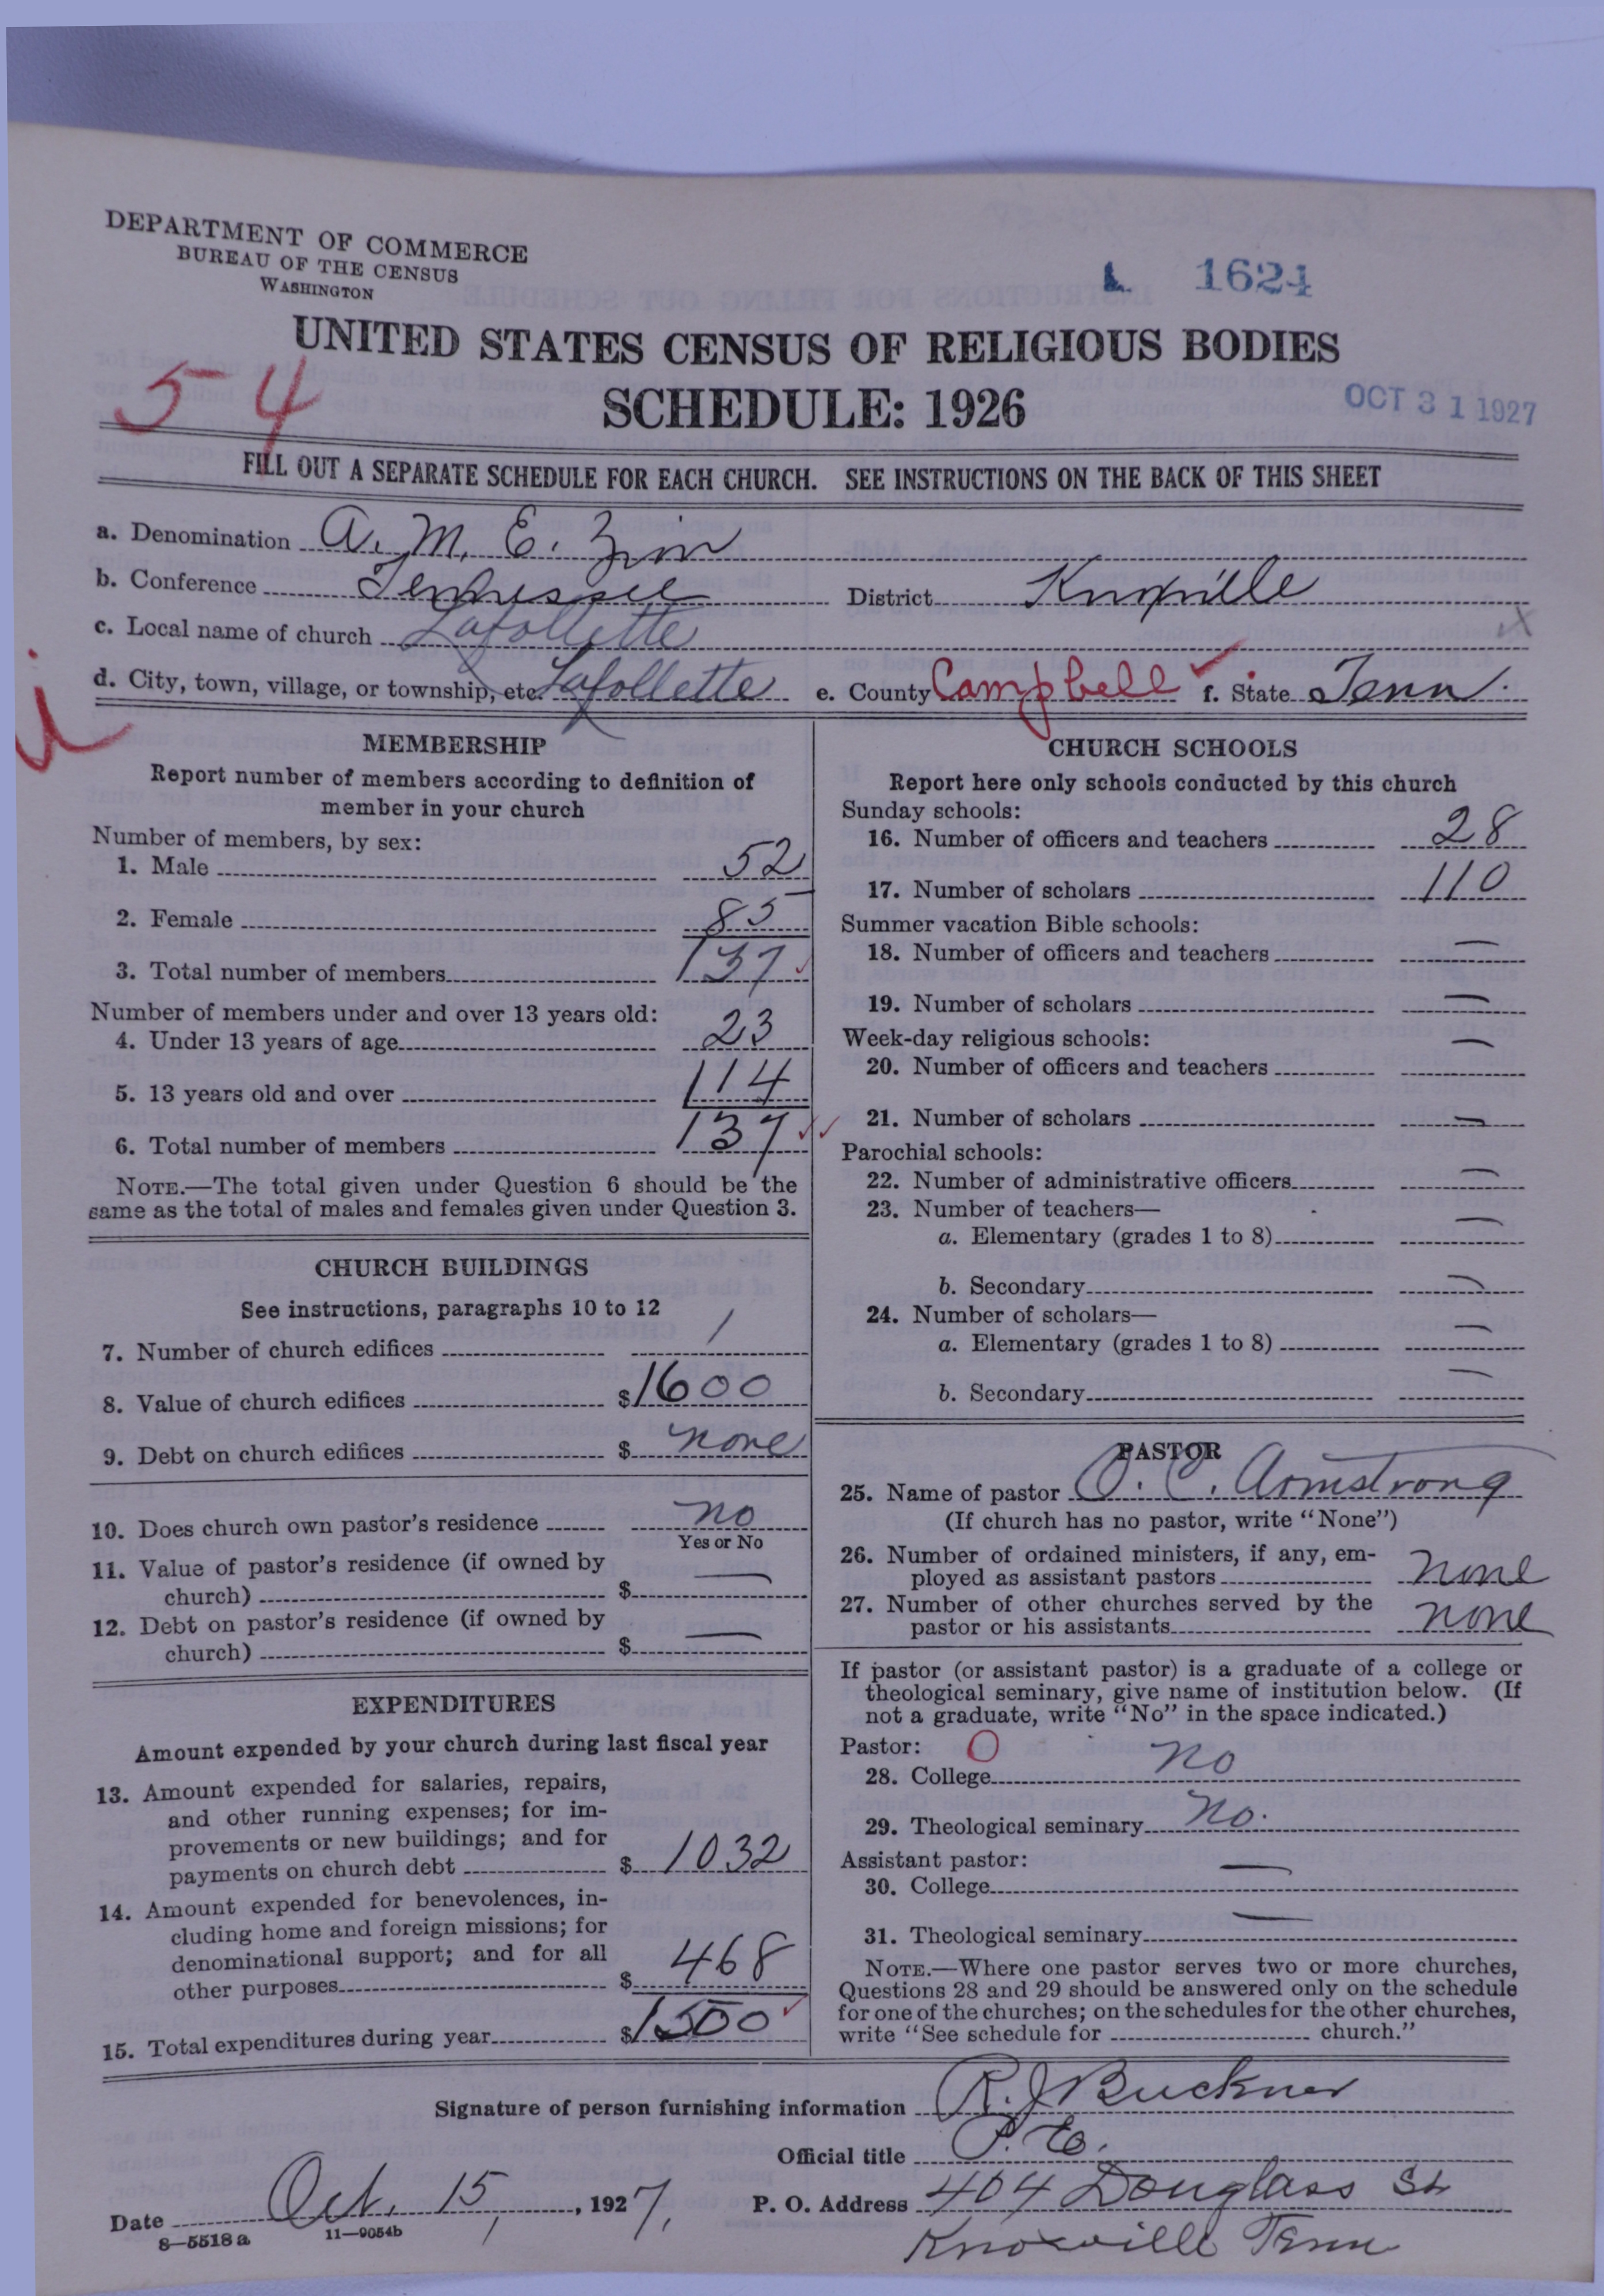 DEPARTMENT OF COMMERCE
BUREAU OF THE CENSUS
WASHINGTON
1624
UNITED STATES CENSUS OF RELIGIOUS BODIES
54
SCHEDULE: 1926
OCT 31 1927
FILL OUT A SEPARATE SCHEDULE FOR EACH CHURCH. SEE INSTRUCTIONS ON THE BACK OF THIS SHEET
a. Denomination A. M. E. Zion
b. Conference Tennessee District Knoxville
c. Local name of church Lafollette
d. City, town, village, or township, etc. Lafollette e. County Campbell ✓ f. State Tenn.
MEMBERSHIP
Report number of members according to definition of
member in your church
Number of members, by sex:
1. Male 52
2. Female 85
3. Total number of members 137 ✓
Number of members under and over 13 years old:
4. Under 13 years of age 23
5. 13 years old and over 114
6. Total number of members 137 ✓✓
NOTE.—The total given under Question 6 should be the
same as the total of males and females given under Question 3.
CHURCH BUILDINGS
See instructions, paragraphs 10 to 12
7. Number of church edifices 1
8. Value of church edifices $1600
9. Debt on church edifices $ none
10. Does church own pastor's residence no
Yes or No
11. Value of pastor's residence (if owned by
church) $ —
12. Debt on pastor's residence (if owned by
church) $ —
EXPENDITURES
Amount expended by your church during last fiscal year
13. Amount expended for salaries, repairs,
and other running expenses; for im-
provements or new buildings; and for
payments on church debt $ 1032
14. Amount expended for benevolences, in-
cluding home and foreign missions; for
denominational support; and for all
other purposes $ 468
15. Total expenditures during year $1500 ✓
CHURCH SCHOOLS
Report here only schools conducted by this church
Sunday schools:
16. Number of officers and teachers 28
17. Number of scholars 110
Summer vacation Bible schools:
18. Number of officers and teachers —
19. Number of scholars —
Week-day religious schools:
20. Number of officers and teachers —
21. Number of scholars —
Parochial schools:
22. Number of administrative officers —
23. Number of teachers—
a. Elementary (grades 1 to 8) —
b. Secondary —
24. Number of scholars—
a. Elementary (grades 1 to 8) —
b. Secondary —
PASTOR
25. Name of pastor O. C. Armstrong
(If church has no pastor, write "None")
26. Number of ordained ministers, if any, em-
ployed as assistant pastors none
27. Number of other churches served by the
pastor or his assistants none
If pastor (or assistant pastor) is a graduate of a college or
theological seminary, give name of institution below. (If
not a graduate, write "No" in the space indicated.)
Pastor: O
28. College no
29. Theological seminary no.
Assistant pastor:
30. College —
31. Theological seminary —
NOTE.—Where one pastor serves two or more churches,
Questions 28 and 29 should be answered only on the schedule
for one of the churches; on the schedules for the other churches,
write "See schedule for church."
Signature of person furnishing information R. J. Buckner
Official title P. E.
Date Oct. 15, 1927. P. O. Address 404 Douglass St
8—5518a 11—9054b
Knoxville Tenn